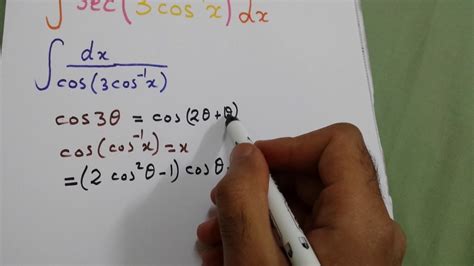 ∫ sec(3cos⁻¹x) dx
∫ dx / cos(3cos⁻¹x)
cos3θ = cos(2θ+θ)
cos(cos⁻¹x) = x
= (2 cos²θ-1) cosθ